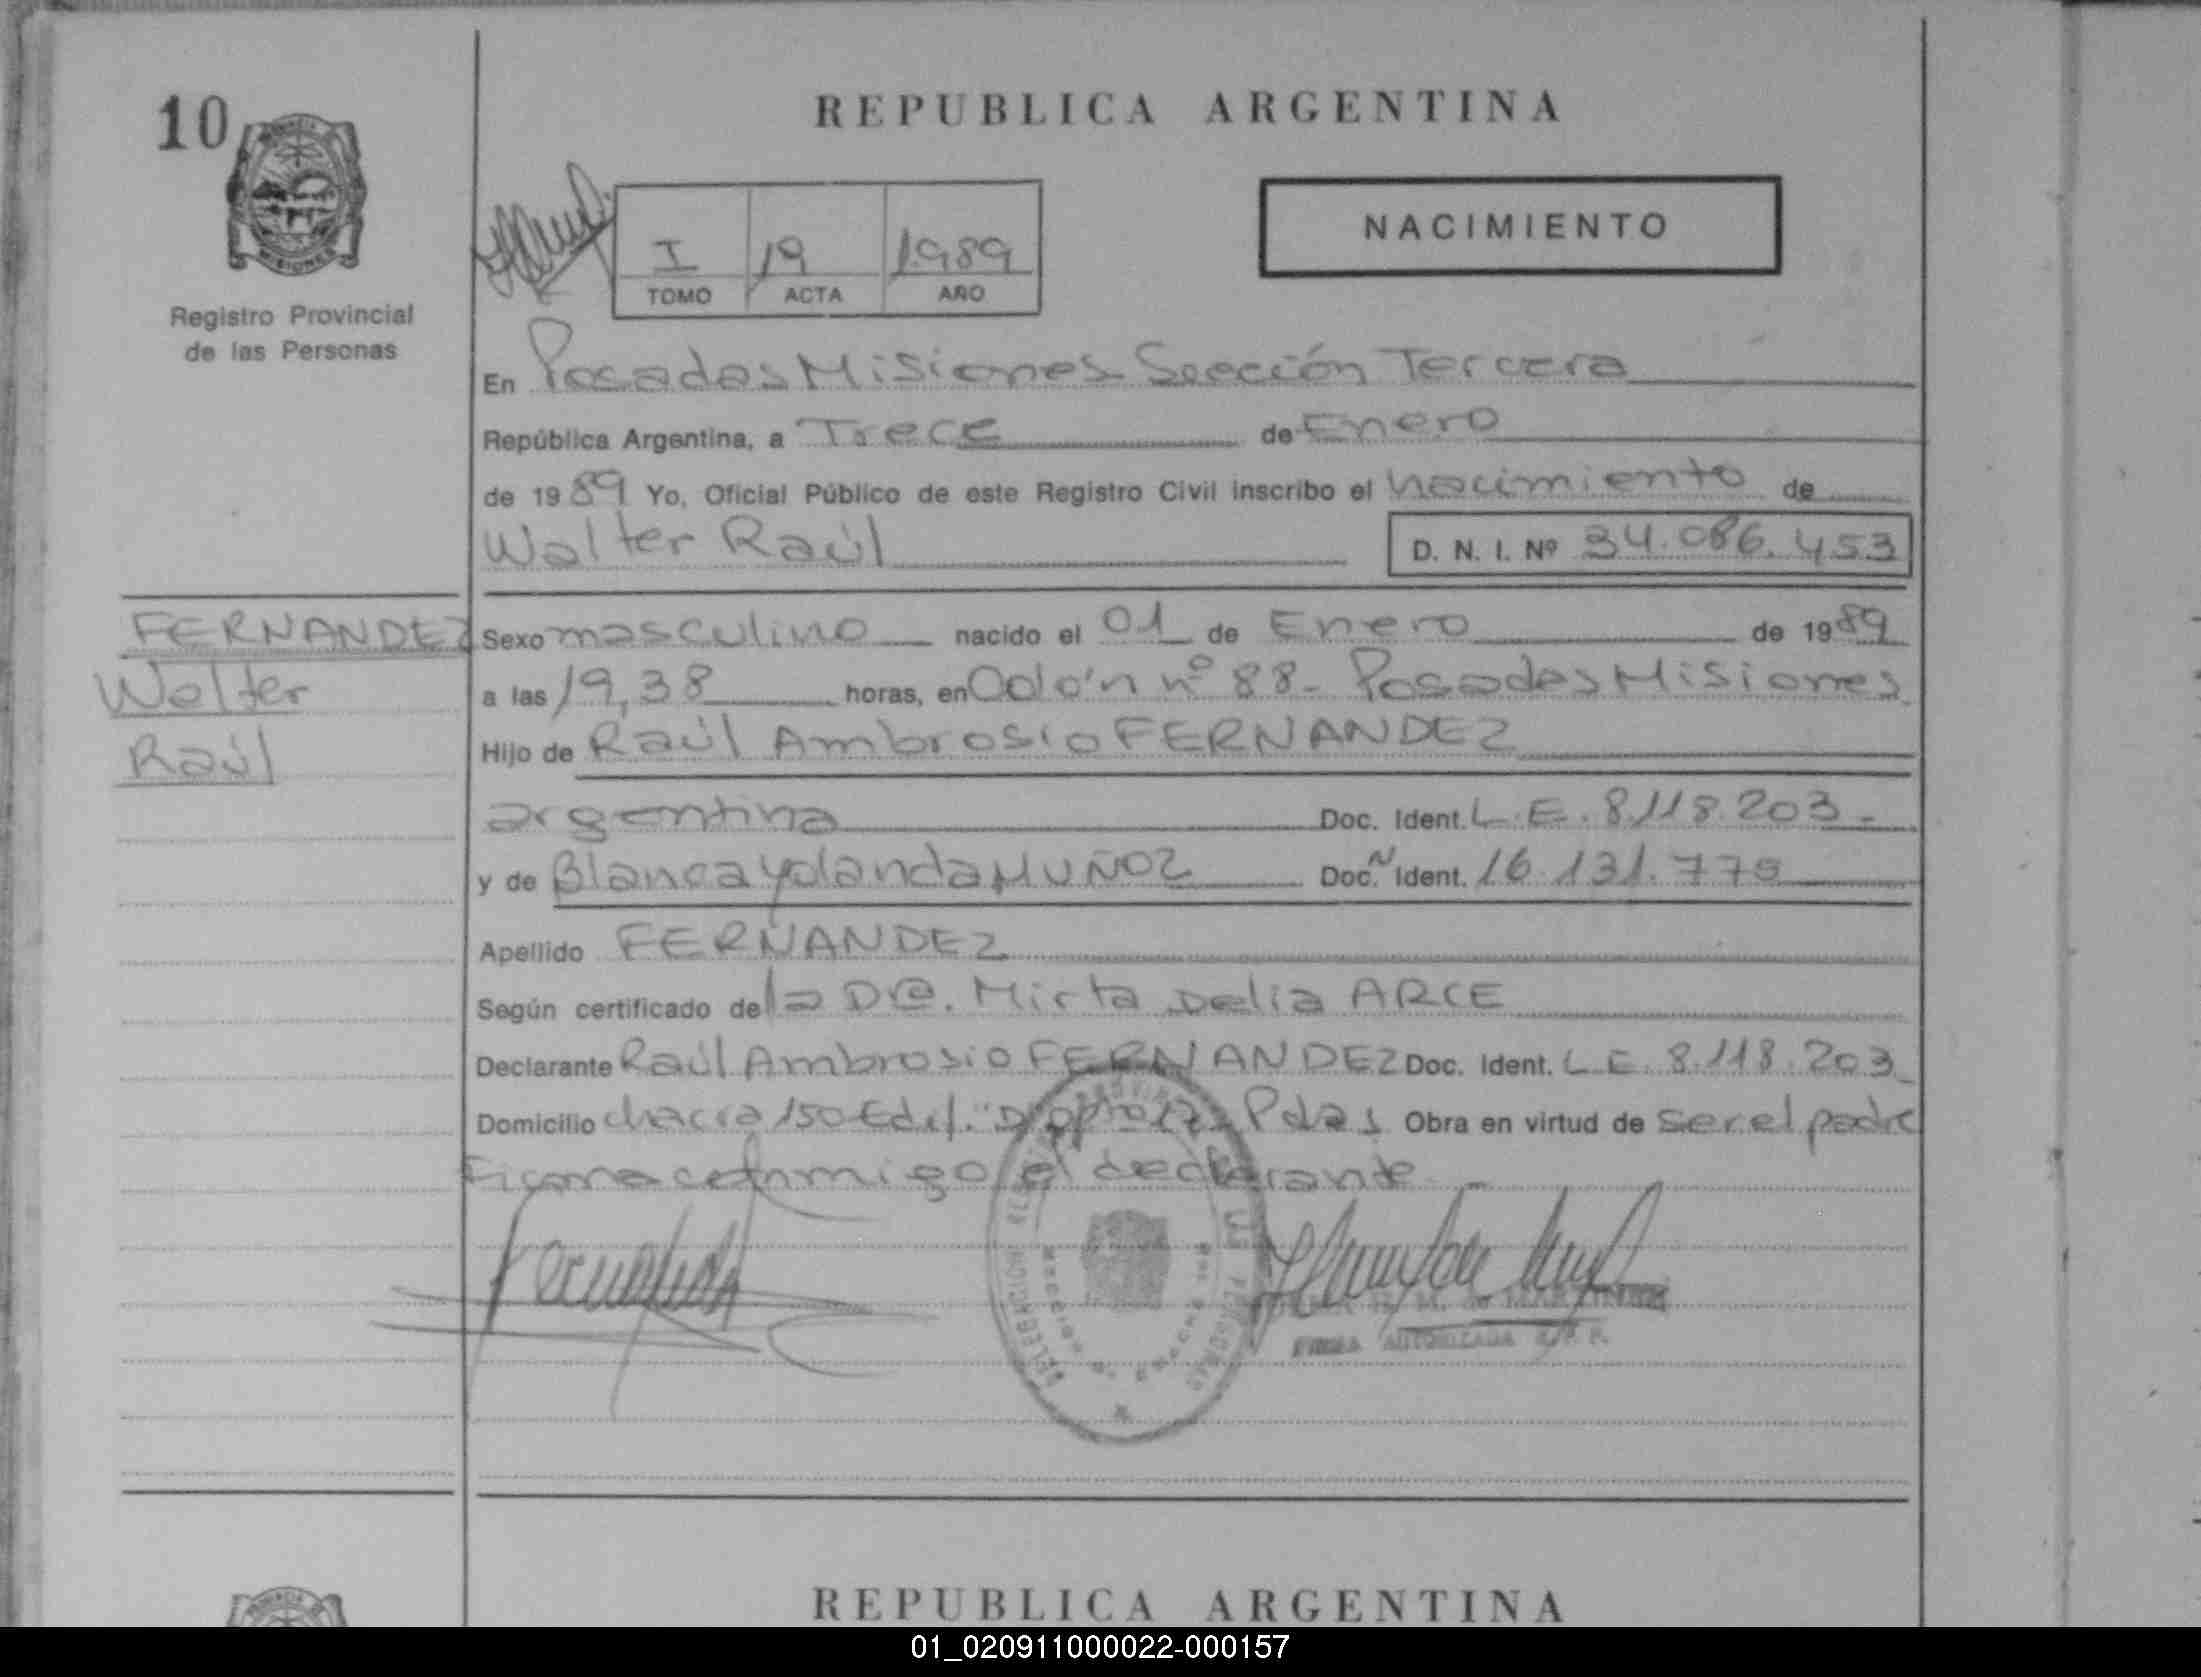 10
REPUBLICA ARGENTINA
MISIONES
Registro Provincial
de las Personas
I 19 1989
TOMO ACTA AÑO
NACIMIENTO
En Posadas Misiones Sección Tercera
República Argentina, a Trece de Enero
de 1989 Yo, Oficial Público de este Registro Civil inscribo el nacimiento de
Walter Raúl D. N. I. Nº 34.086.453
FERNANDEZ
Walter
Raúl
Sexo masculino nacido el 01 de Enero de 1989
a las 19,38 horas, en Colón nº 88- Posadas Misiones
Hijo de Raúl Ambrosio FERNANDEZ
argentina Doc. Ident. L.E. 8.118.203-
y de Blanca Yolanda MUÑOZ Doc. N Ident. 16.131.775
Apellido FERNANDEZ
Según certificado de la Dra. Mirta Delia ARCE
Declarante Raúl Ambrosio FERNANDEZ Doc. Ident. L.E. 8.118.203
Domicilio chacra 150 Edif. "D" Pdas Obra en virtud de ser el padre
Firma conmigo el declarante
FIRMA AUTORIZADA
REPUBLICA ARGENTINA
01_020911000022-000157